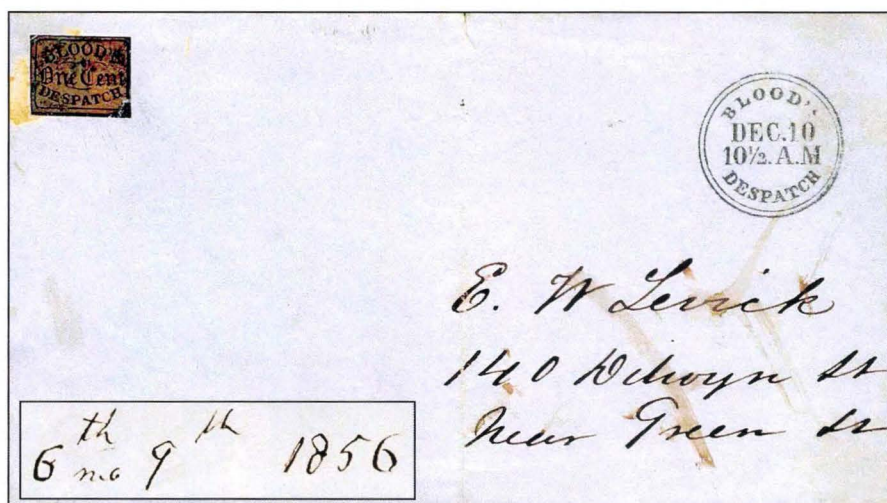 BLOOD'S
One Cent
DESPATCH
BLOOD'S
DEC.10
10½.A.M
DESPATCH
E. W Levick
140 St
Near Green St
6th mo 9th 1856